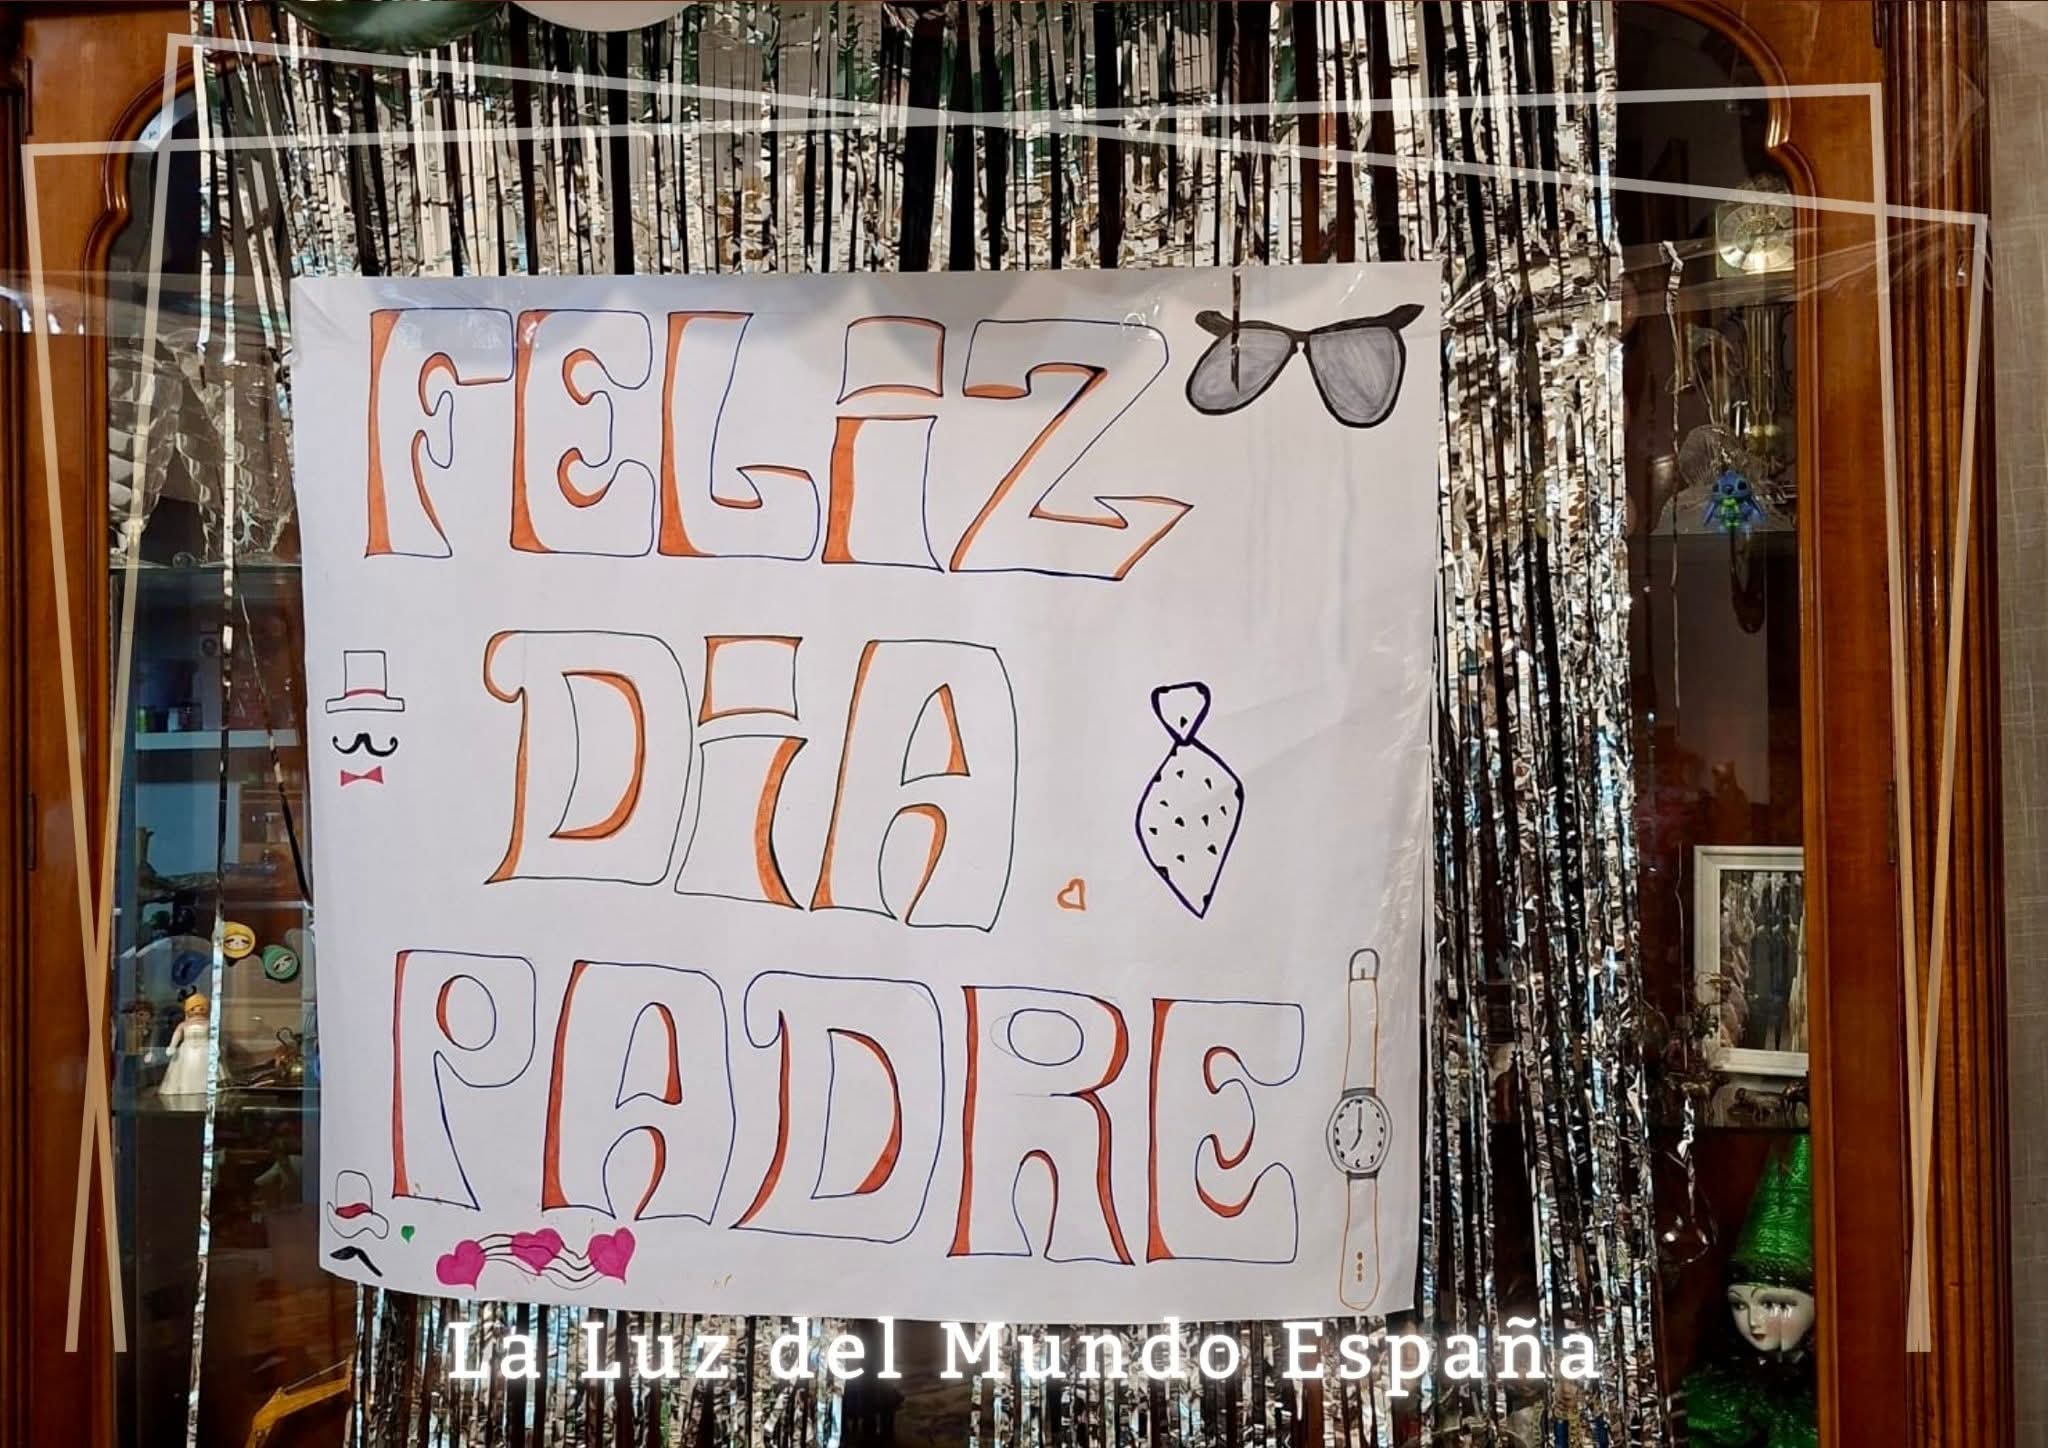 FELiZ
DiA
PADRE
La Luz del Mundo España